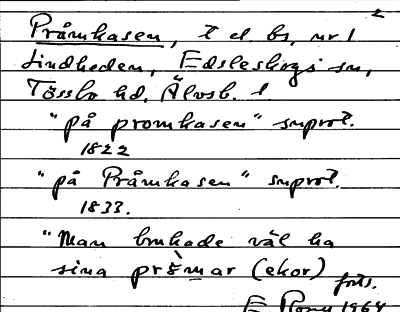 2
Pråmkasen, t el. bs, nr 1
Lindheden, Edsleskogs sn,
Tössbo hd, Älvsb. l.
"på promkasen" snprot.
1822
"på Pråmkasen" snprot.
1833.
"Man brukade väl ha
sina pròmar (ekor)
forts.
E 1964